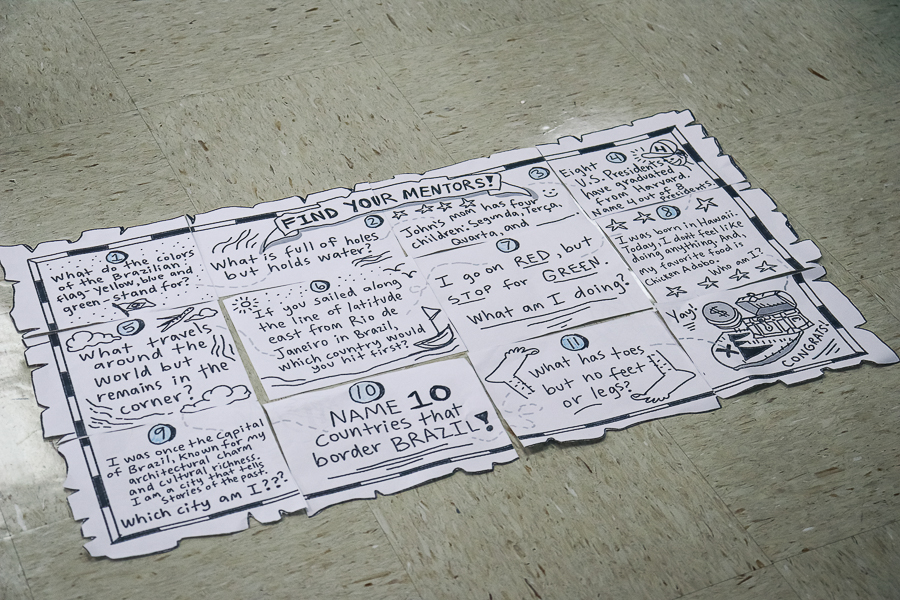 FIND YOUR MENTORS!
1
What do the colors
of the Brazilian
flag-Yellow, blue and
green-stand for?
2
What is full of holes
but holds water?
3
John's mom has four
children: Segunda, Terça,
Quarta, and
4
4
Eight
U.S. Presidents
have graduated
from Harvard.
Name 4 out of 8
presidents.
5
What travels
around the
world but
remains in the
corner?
6
If you sailed along
the line of latitude
east from Rio de
Janeiro in Brazil,
which country would
you hit first?
7
I go on RED, but
STOP for GREEN
What am I doing?
8
I was born in Hawaii.
Today, I don't feel like
doing anything. And
my favorite food is
Chicken Adobo.
Who am I?
9
I was once the capital
of Brazil, known for my
architectural charm
and cultural richness.
I am a city that tells
stories of the past.
Which city am I???
10
NAME 10
Countries that
border BRAZIL!
11
What has toes
but no feet
or legs?
Yay!
$
X
CONGRATS!